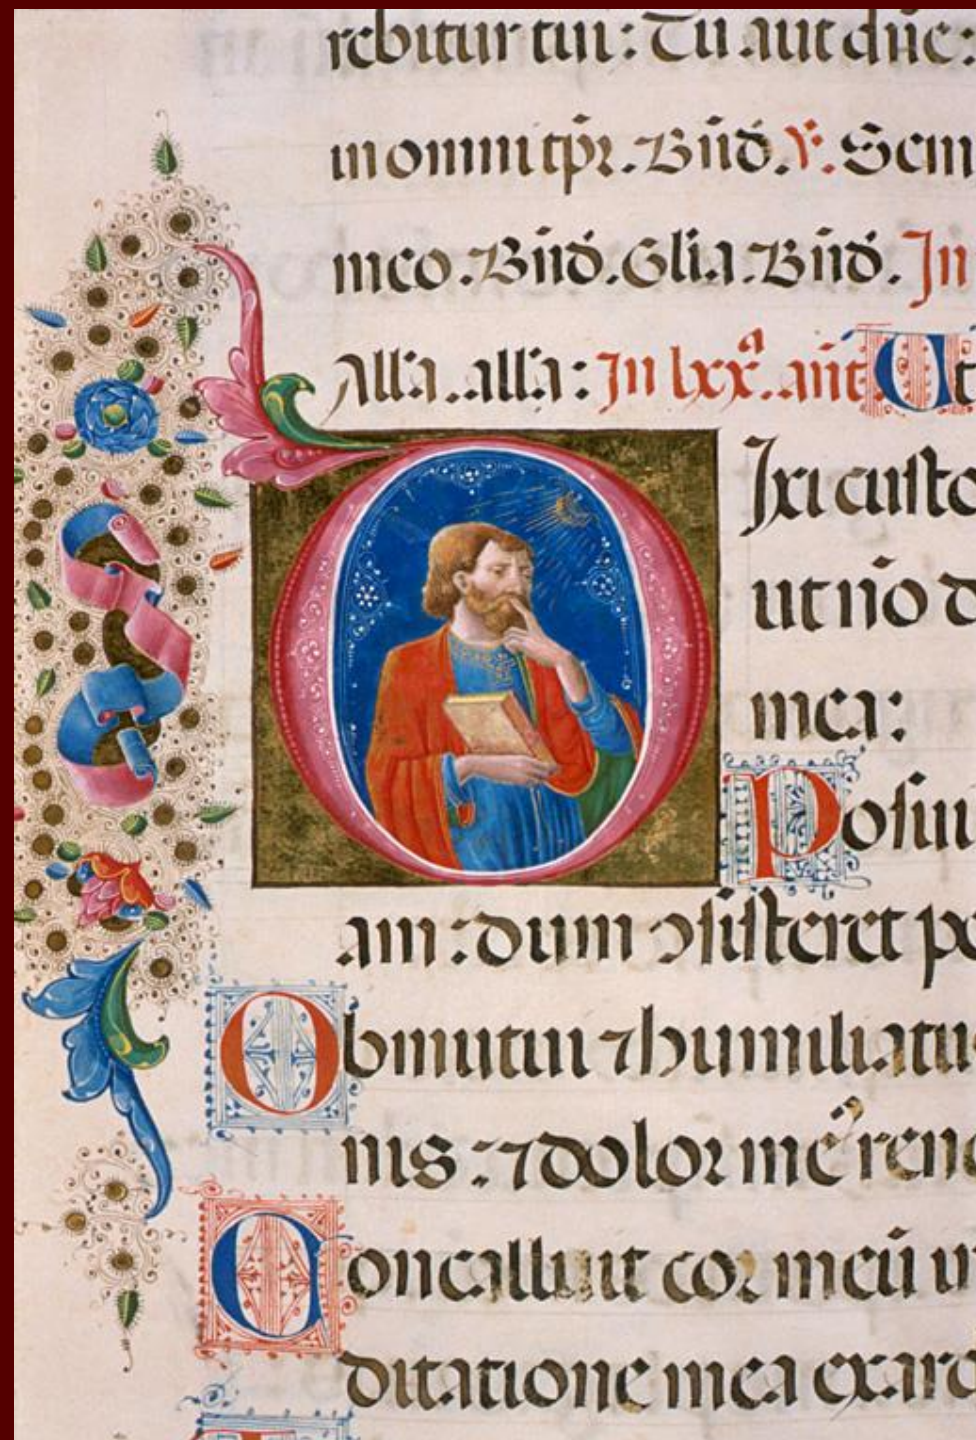 rebitur tui: Tu aut dn̄e:
in omni tp̄r. Bn̄d. ꝟ. Sem
meo. Bn̄d. Gl̄ia. Bn̄d. In
All̄a. all̄a: In lxxᵃ. an̄t Ut
Dixi custo
ut nō d
mea:
Posui
am: dum ↄsisteret pe
Obmutui ⁊ humiliatus
nis: ⁊ dolor me᷒ reno
Concalluit cor meū in
ditatione mea exard